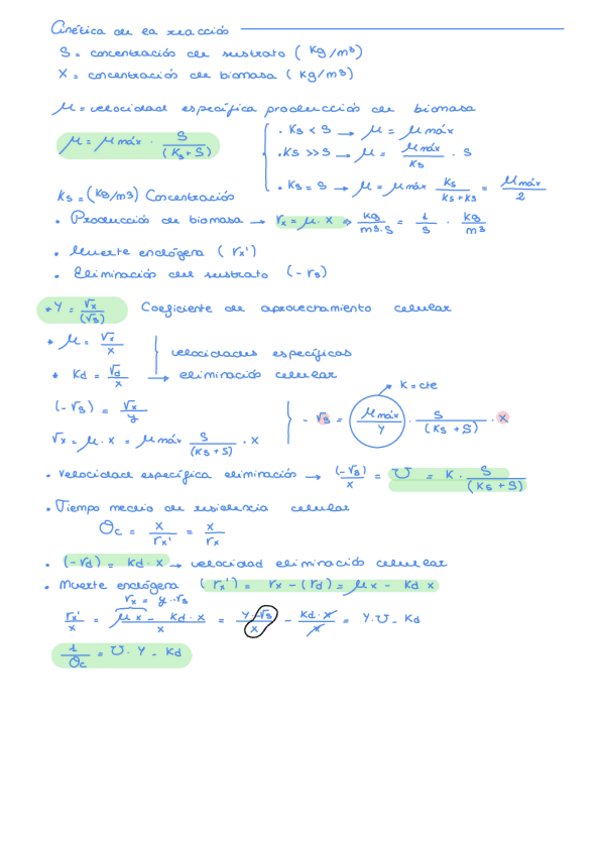 Cinética de la reacción
S = concentración de sustrato ( Kg/m³)
X = concentración de biomasa ( Kg/m³)
μ = velocidad específica producción de biomasa
μ = μ máx · S/(Ks+S)
· Ks < S → μ = μ máx
· Ks >> S → μ = μ máx/Ks · S
· Ks = S → μ = μ máx Ks/(Ks+Ks) = μ máx/2
Ks = (Kg/m3) Concentración
· Producción de biomasa → rx = μ. X ⇒ kg/m3.s = 1/s · kg/m3
· Muerte endógena ( rx')
· Eliminación del sustrato (- rs)
* Y = rx/(rs) Coeficiente de aprovechamiento celular
* μ = rx/x
velocidades específicas
* Kd = rd/x → eliminación celular
K = cte
(- rs) = rx/y
- rs = μ máx/Y · S/(Ks + S) · X
rx = μ. x = μ máx S/(Ks + S) · X
· Velocidad específica eliminación → (-rs)/x = U = K · S/(Ks + S)
· Tiempo medio de residencia celular
Θc = X/rx' = X/rx
· (-rd) = Kd · x → velocidad eliminación celular
· Muerte endógena (rx') = rx - (rd) = μ x - Kd x
rx = y · rs
rx'/x = μ x - Kd · x/x = Y · rs/x - Kd · x/x = Y. U - Kd
1/Θc = U · Y - Kd